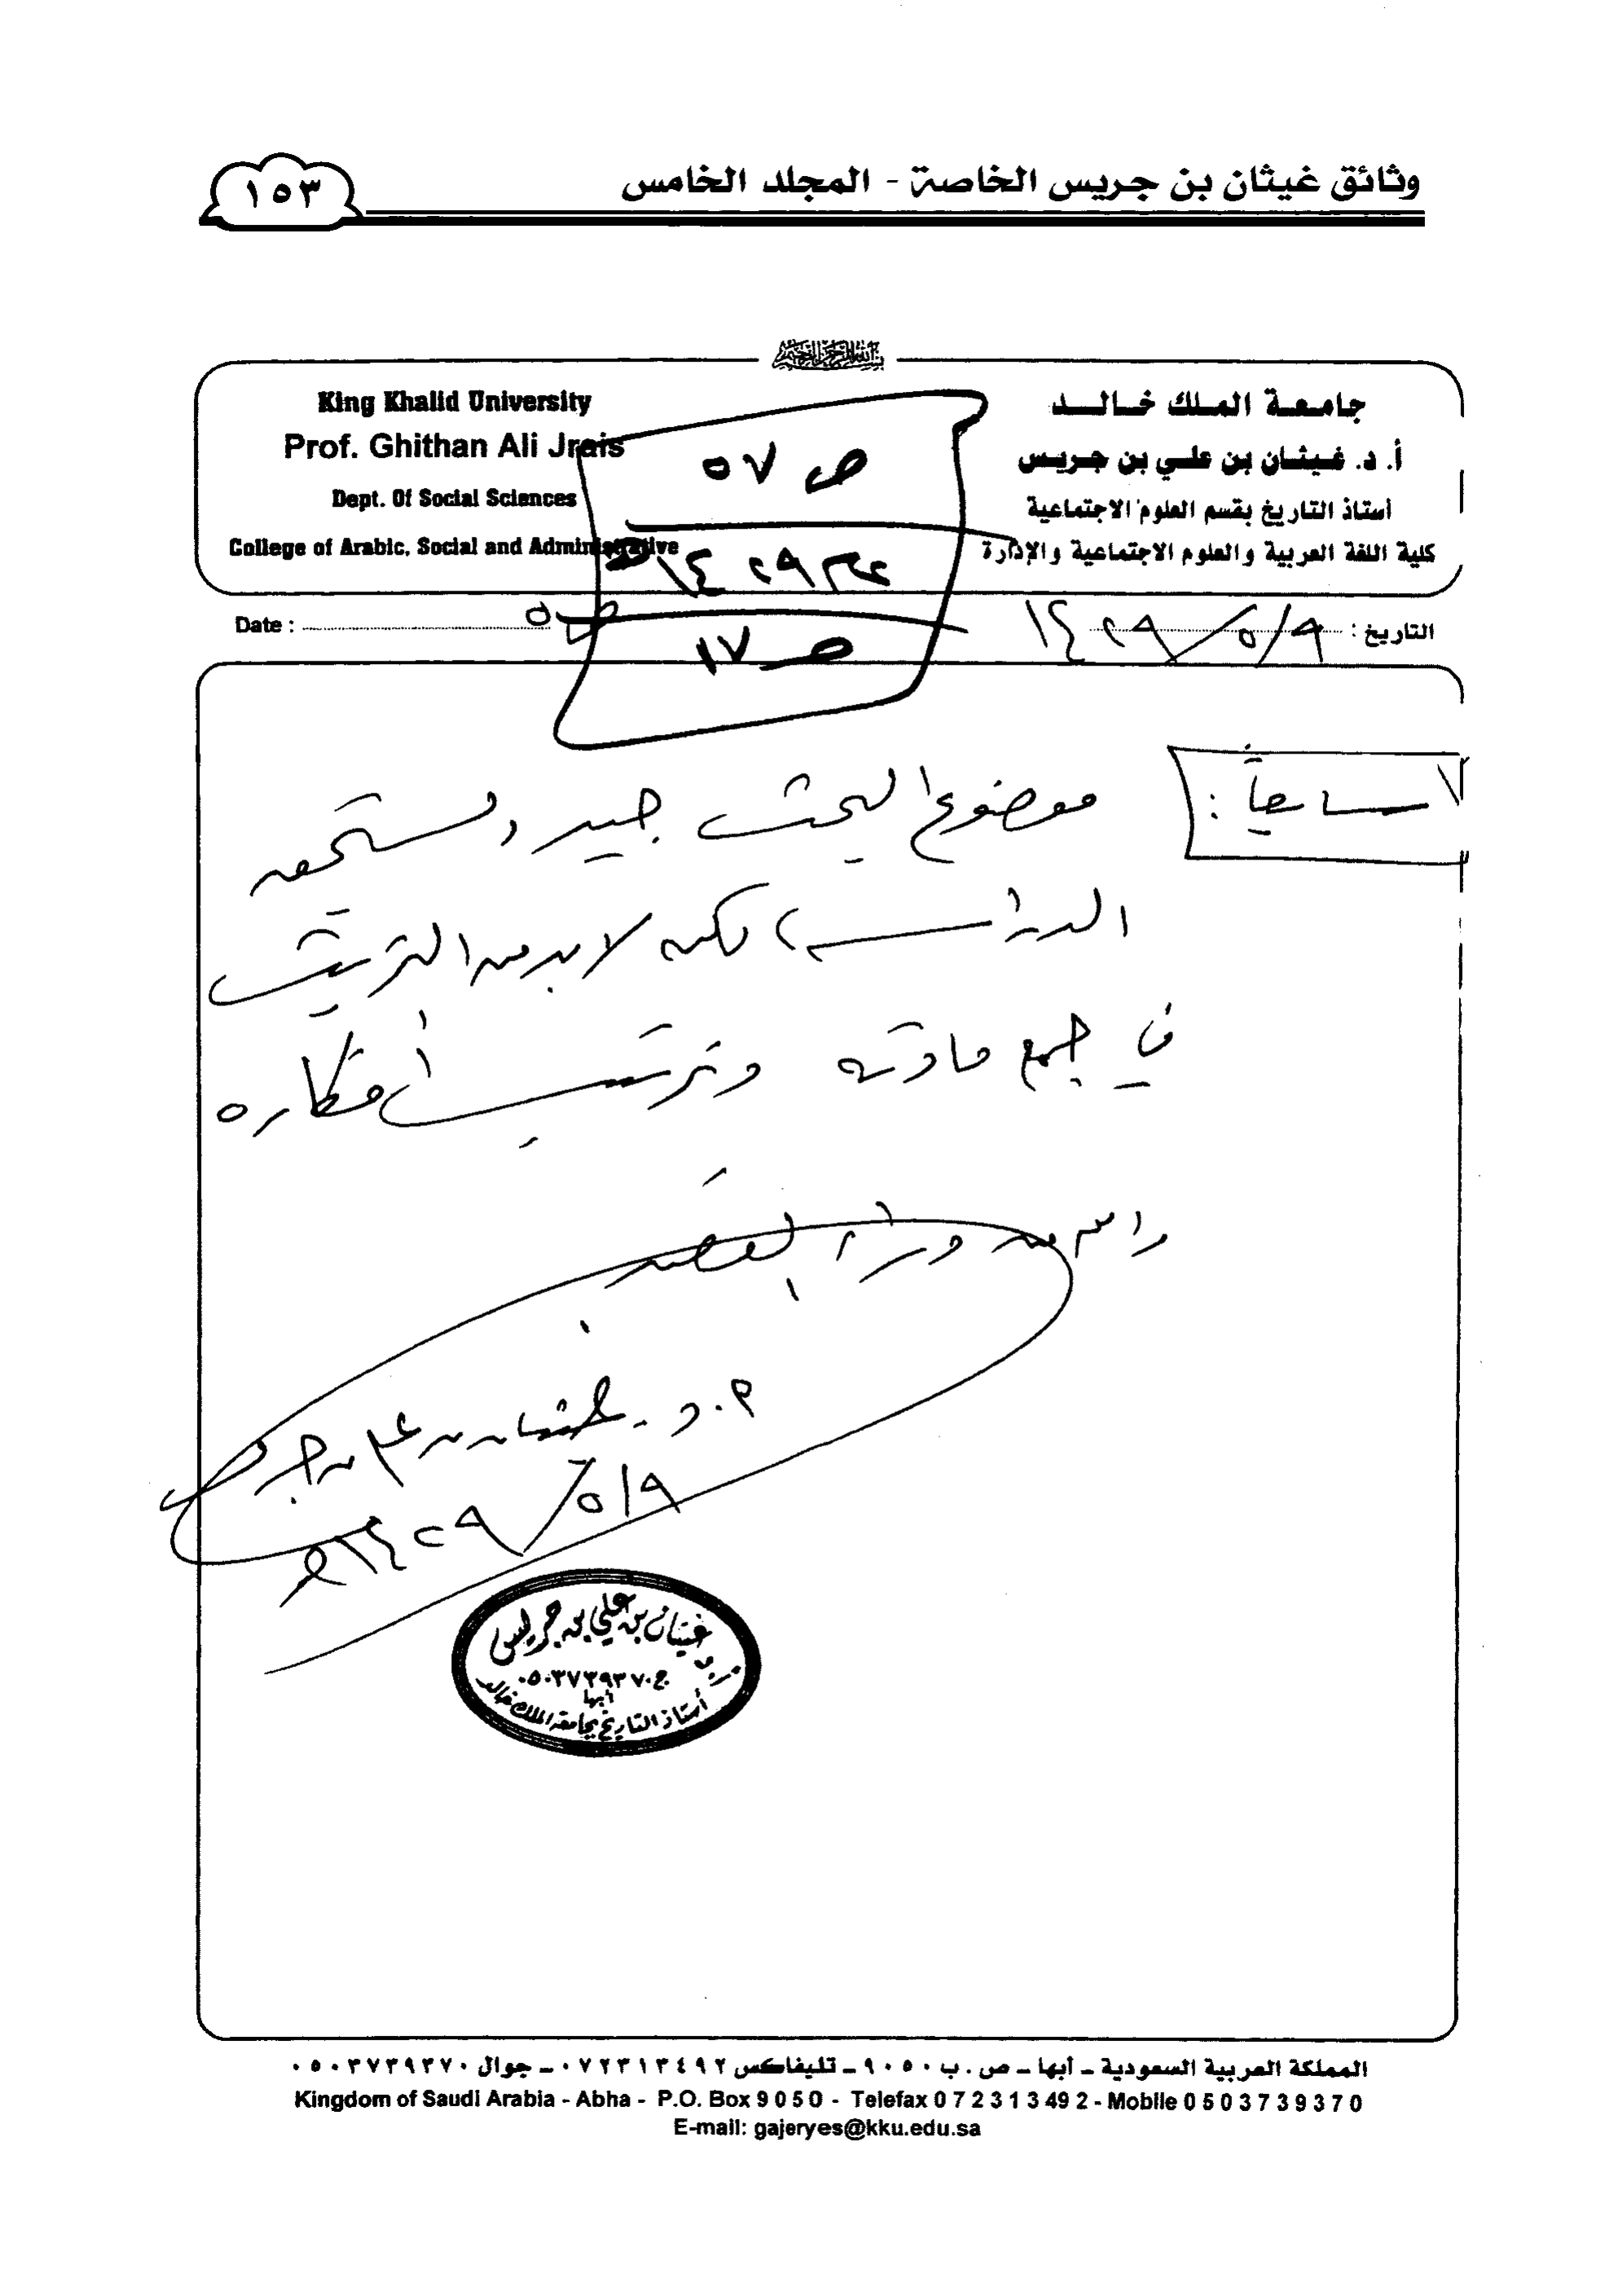 وثائق غيثان بن جريس الخاصة - المجلد الخامس
١٥٣
جامعة الملك خالد
أ. د. غيثان بن علي بن جريس
أستاذ التاريخ بقسم العلوم الاجتماعية
كلية اللغة العربية والعلوم الاجتماعية والإدارة
King Khalid University
Prof. Ghithan Ali Jrais
Dept. Of Social Sciences
College of Arabic, Social and Administrative
ص ٥٧
١٤٢٩
ص ١٧
التاريخ : ٩/٥/١٤٢٩
Date :
ص ٥
سابعاً :
موضوع البحث جيد ويستحق
الدراسة، لكنه لا بد من التريث
في جمع مادته وترتيب أفكاره
والله من وراء القصد
أ.د. غيثان بن علي بن جريس
٩/٥/١٤٢٩هـ
غيثان بن علي بن جريس
ج ٠٥٠٣٧٣٩٣٧٠
أبها
أستاذ التاريخ بجامعة الملك خالد
المملكة العربية السعودية - أبها - ص . ب ٩٠٥٠ - تليفاكس ٠٧٢٣١٣٤٩٢ - جوال ٠٥٠٣٧٣٩٣٧٠
Kingdom of Saudi Arabia - Abha - P.O. Box 9 0 5 0 - Telefax 0 7 2 3 1 3 4 9 2 - Mobile 0 5 0 3 7 3 9 3 7 0
E-mail: gajeryes@kku.edu.sa